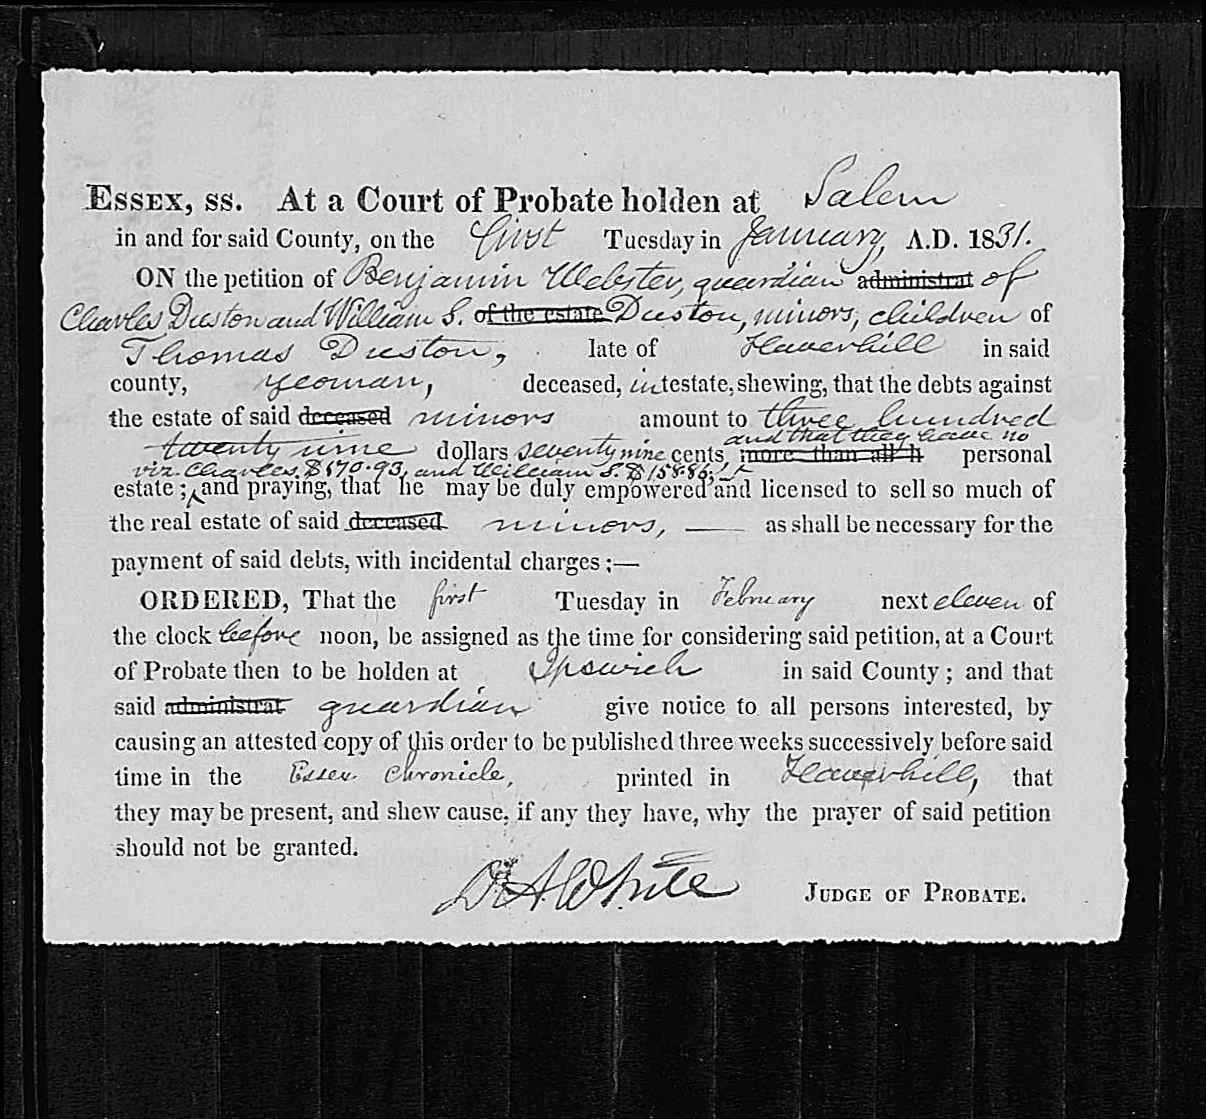 ESSEX, ss. At a Court of Probate holden at Salem
in and for said County, on the first Tuesday in January, A.D. 1831.
ON the petition of Benjamin Webster, guardian administrat of
Charles Duston and William S. of the estate Duston, minors, children of
Thomas Duston, late of Haverhill in said
county, yeoman, deceased, intestate, shewing, that the debts against
the estate of said deceased minors amount to three hundred
and that they have no
twenty nine dollars seventy nine cents more than all h personal
viz. Charles, $170.93, and William S. $158.86,
estate; and praying, that he may be duly empowered and licensed to sell so much of
the real estate of said deceased minors, — as shall be necessary for the
payment of said debts, with incidental charges;—
ORDERED, That the first Tuesday in February next eleven of
the clock before noon, be assigned as the time for considering said petition, at a Court
of Probate then to be holden at Ipswich in said County; and that
said administrat guardian give notice to all persons interested, by
causing an attested copy of this order to be published three weeks successively before said
time in the Essex Chronicle, printed in Haverhill, that
they may be present, and shew cause, if any they have, why the prayer of said petition
should not be granted.
D. A. White JUDGE OF PROBATE.